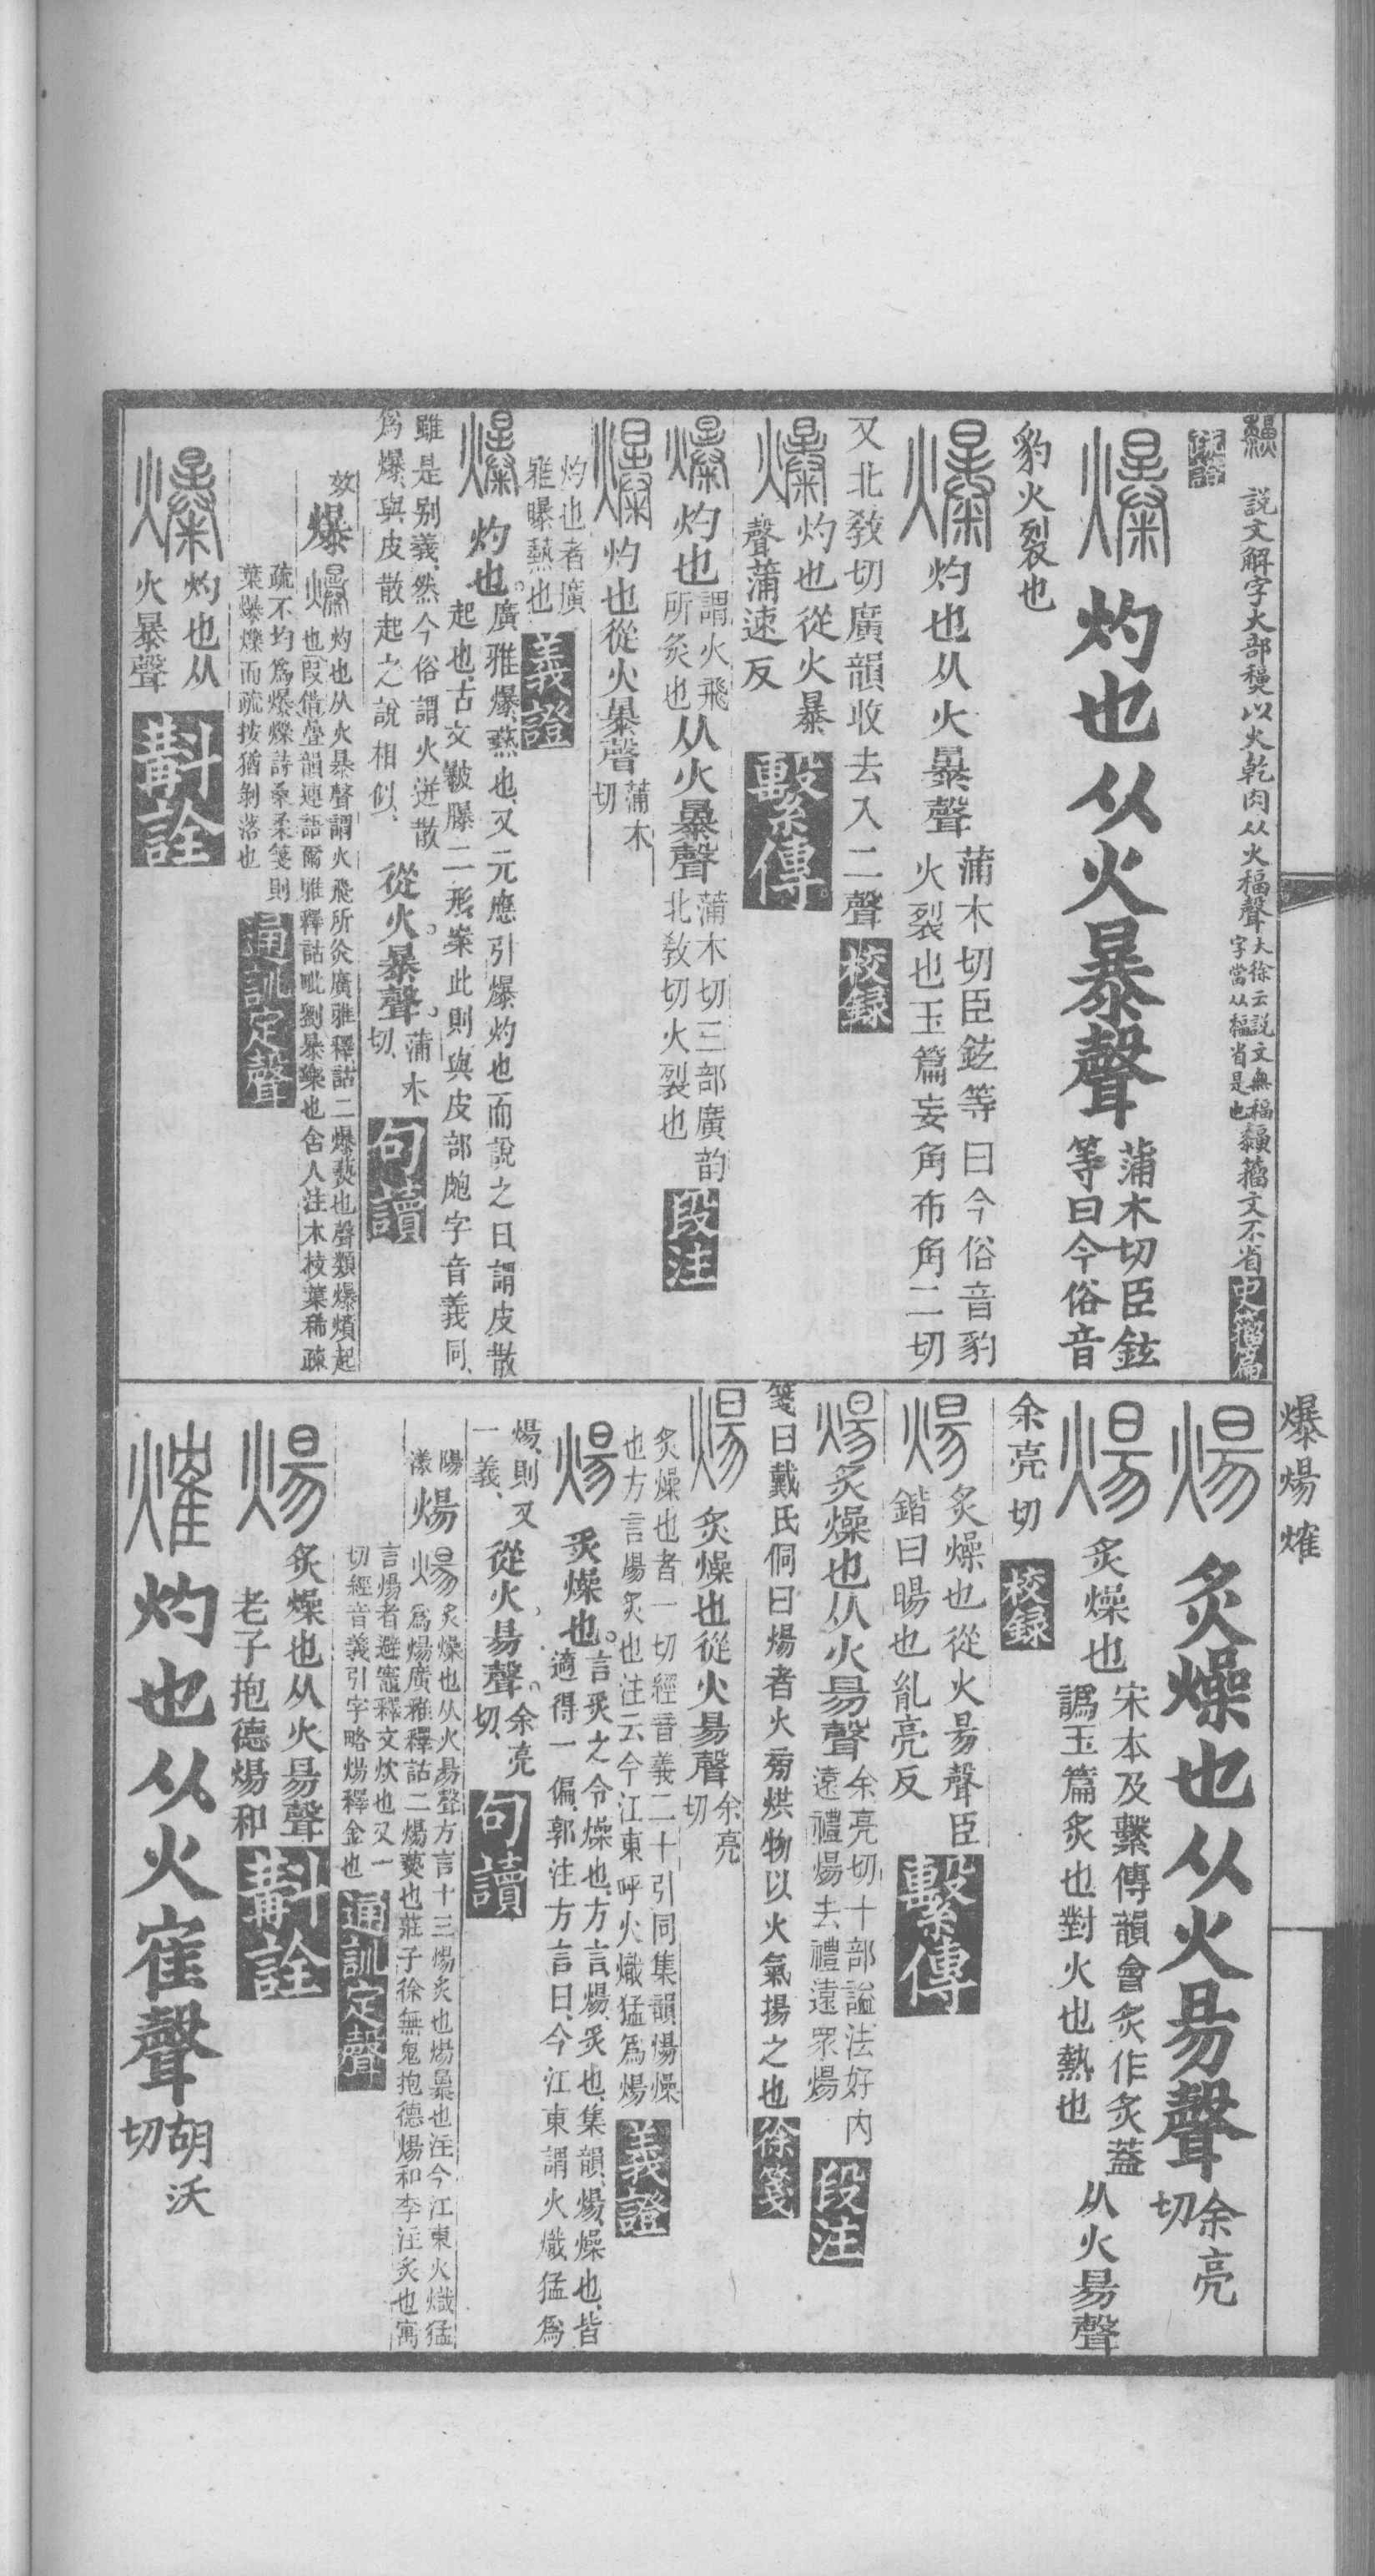 說文解字大部䵋以火乾肉从火稫聲大徐云說文無稫字當从䮠省是也籒文不省 史籀篇
疏證
爆 灼也从火暴聲 蒲木切臣鉉等曰今俗音
豹火裂也
爆 灼也从火暴聲 蒲木切臣鉉等曰今俗音豹
火裂也玉篇妄角布角二切
又北敎切廣韻收去入二聲 校錄
爆 灼也從火暴
聲蒲速反 繫傳
爆 灼也謂火飛所灸也从火暴聲 蒲木切三部廣韵北敎切火裂也 段注
爆 灼也從火暴聲 蒲木切
灼也者廣雅曝熱也 義證
爆 灼也。廣雅爆、爇也、又元應引爆灼也而說之曰、謂皮散
起也、古文皺㿺二形、案此則與皮部皰字音義同、
雖是别義、然今俗謂火迸散
爲爆、與皮散起之說相似、 從火暴聲。蒲木切、 句讀
效 爆 灼也从火暴聲謂火飛所灸廣雅釋詁二爆爇也聲類爆熕起
也叚借疊韻連語爾雅釋詁毗劉暴樂也舍人注木枝葉稀疎
疏不均爲爆爍詩桑柔箋則
葉爆爍而疏按猶剝落也 通訓定聲
爆 灼也从
火暴聲 斠詮
爆煬㷶
煬 炙燥也从火昜聲 余亮切
煬 炙燥也 宋本及繫傳韻會炙作炙蓋
譌玉篇炙也對火也熱也 从火昜聲
余亮切 校錄
煬 炙燥也從火昜聲臣
鍇曰暘也亂亮反 繫傳
煬 炙燥也从火昜聲 余亮切十部諡法好内
遠禮煬去禮遠眾煬 段注
箋曰戴氏侗曰煬者火旁烘物以火氣揚之也 徐箋
煬 炙燥也從火昜聲 余亮切
炙燥也者一切經音義二十引同集韻煬燥
也方言煬炙也注云今江東呼火熾猛爲煬 義證
煬 炙燥也。言炙之令燥也、方言、煬、炙也、集韻、煬、燥也、皆
適得一偏、郭注方言曰、今江東謂火熾猛爲
煬、則又
一義、 從火昜聲。余亮切、 句讀
陽 漾 煬 炙燥也从火昜聲方言十三煬炙也煬㬥也注今江東火熾猛
爲煬廣雅釋詁二煬爇也莊子徐無鬼抱德煬和李注炙也寓
言煬者避竈釋文炊也又一
切經音義引字略煬釋金也 通訓定聲
煬 炙燥也从火昜聲
老子抱德煬和 斠詮
㷶 灼也从火隺聲 胡沃切